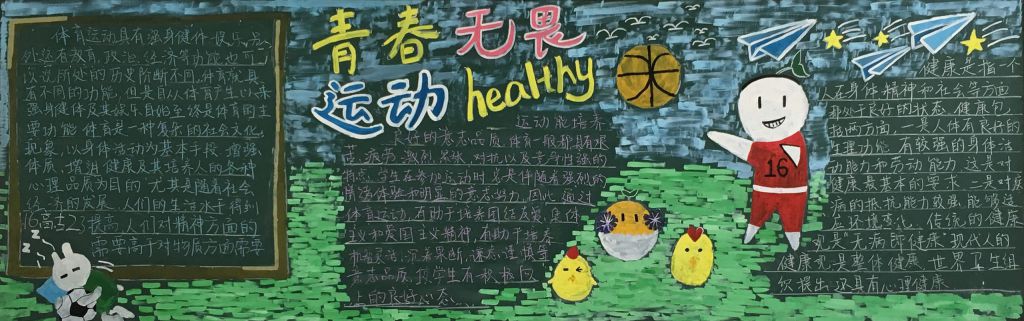 青春无畏
运动 healthy
体育运动具有强身健体 娱乐,
外还有教育,政治,经济等功能也可
以说所处的历史阶段不同,体育就具
有不同的功能,但是自从体育产生以来
强身健体及其娱乐目的至终是体育的主
要功能 体育是一种复杂的社会文化
现象,以身体活动为基本手段,增强
体质,增进健康及其培养人的各种
心理品质为目的 尤其是随着社会
经济的发展 人们的生活水平得到
提高,人们对精神方面的
需要高于对物质方面需要
16高志2
运动能培养
良好的意志品质,体育一般都具有艰
苦,疲劳,激烈,紧张,对抗以及竞争性强的
特点,学生在参加运动时,总是伴随着强烈的
情绪体验和明显的意志努力,因此,通过
体育运动,有助于培养团结友爱,集体
主义和爱国主义精神,有助于培养
机智灵活,沉着果断,谦虚谨慎等
意志品质,使学生有积极向
上的良好心态
16
健康是指一个
人在身体,精神和社会等方面
都处于良好的状态 健康包
括两方面,一是人体有良好的
生理功能,有较强的身体活
动能力和劳动能力,这是对
健康最基本的要求,二是对疾
病的抵抗能力较强,能够适
应环境变化,传统的健康
观是"无病即健康"现代人的
健康观是整体健康,世界卫生组
织提出,还具有心理健康